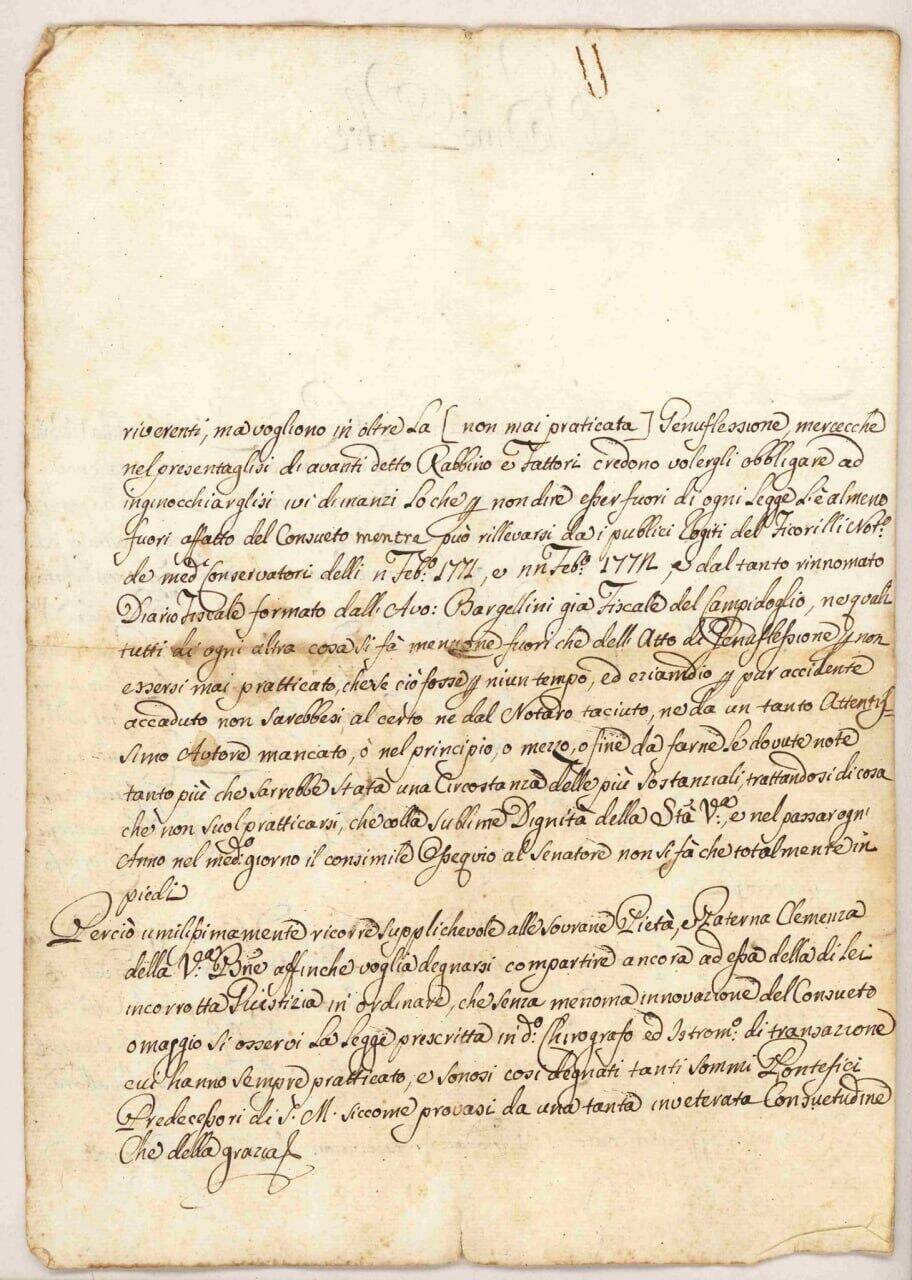 riverenti, ma vogliono in oltre La [ non mai praticata ] Genuflessione, mercecche
nel presentaglisi di avanti detto Rabbino e Fattori credono volergli obbligare ad
inginocchiarglisi ivi dinanzi Lo che p non dire esser fuori di ogni Legge L'è almeno
fuori affatto del Consueto mentre può rillevarsi da i publici Rogiti del Ficorilli Not.º
de med.i Conservatori delli Feb.º 1771, e Feb.º e dal tanto rinnomato
Diario Fiscale formato dall' Avo: Bargellini già Fiscale del Campidoglio, ne quali
tutti di ogni altra cosa si fà menzione fuori che dell' Atto di Genuflessione p non
essersi mai pratticato, che se ciò fosse p niun tempo, ed eziamdio p pur accidente
accaduto non sarebbesi al certo ne dal Notaro taciuto, ne da un tanto Attentis-
simo Autore mancato, ò nel principio, o mezzo, o fine da farne le dovute note
tanto più che sarrebbe stata una Circostanza delle più sostanziali, trattandosi di cosa
che non suol pratticarsi, che colla sublime Dignità della Stà V.ª, e nel passar ogn'
Anno nel med.º giorno il consimile Ossequio al Senatore non si fà che totalmente in
piedi
Perciò umilissimamente ricorre supplichevole alle sovrane Pietà, e Paterna Clemenza
della V.ª Bne affinche voglia degnarsi compartire ancora ad essa della di Lei
incorrotta Giustizia in ordinare, che senza menoma innovazione del Consueto
omaggio si osservi La Legge prescritta in d.º Chirografo ed Istrom.º di transazione
cui hanno sempre pratticato, e sonosi così degnati tanti sommi Pontefici
Predecessori di S. M. siccome provasi da una tanta inveterata Consuetudine
Che della grazia